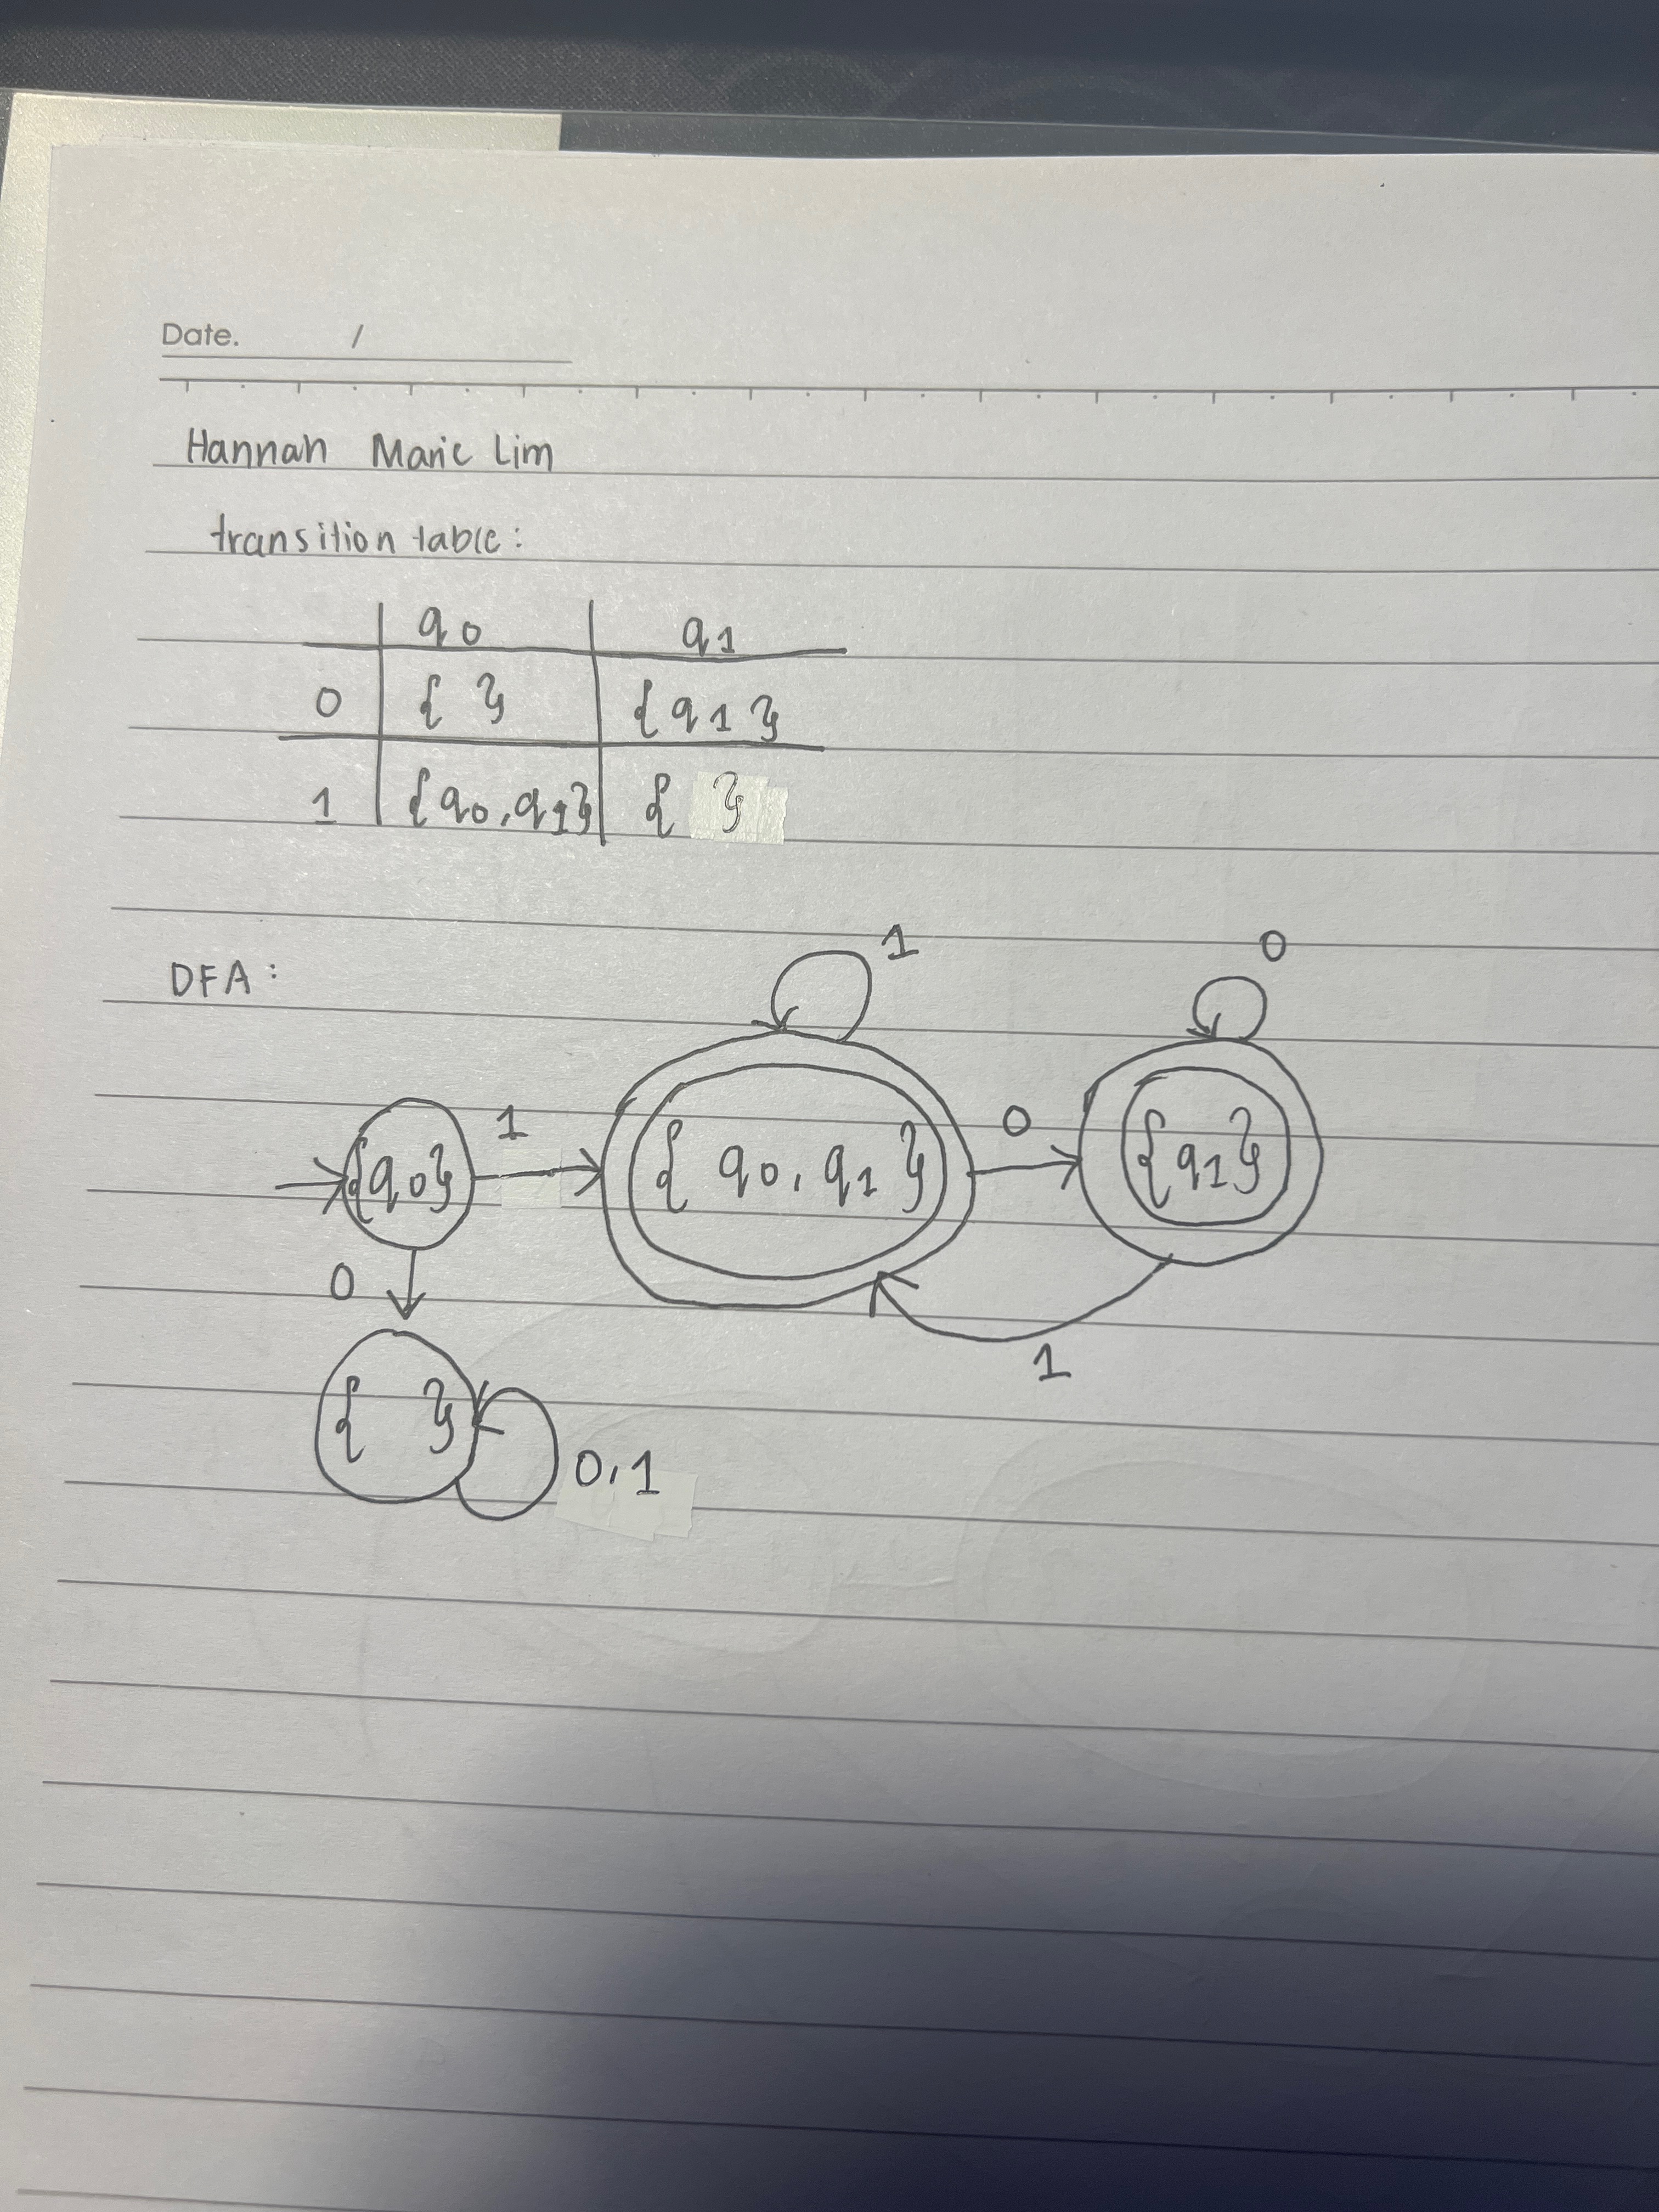 Date. /
Hannah Marie Lim
transition table:
q0 q1
0 { } {q1}
1 {q0,q1} { }
DFA:
1 0
{q0} 1 { q0, q1 } 0 {q1}
0
1
{ } 0,1